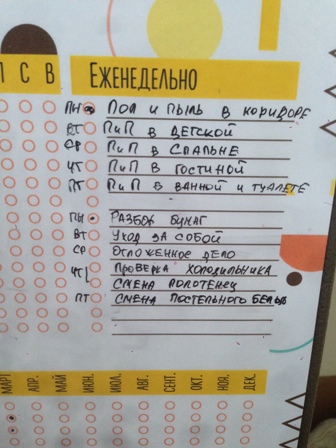 П С В ЕЖЕНЕДЕЛЬНО
ПН ПОЛ И ПЫЛЬ В КОРИДОРЕ
ВТ ПиП В ДЕТСКОЙ
СР ПиП В СПАЛЬНЕ
ЧТ ПиП В ГОСТИНОЙ
ПТ ПиП В ВАННОЙ И ТУАЛЕТЕ
ПН РАЗБОР БУМАГ
ВТ УХОД ЗА СОБОЙ
СР ОТЛОЖЕННОЕ ДЕЛО
ЧТ ПРОВЕРКА ХОЛОДИЛЬНИКА
СМЕНА ПОЛОТЕНЕЦ
ПТ СМЕНА ПОСТЕЛЬНОГО БЕЛЬЯ
МАРТ АПР. МАЙ ИЮН. ИЮЛ. АВГ. СЕНТ. ОКТ. НОЯ. ДЕК.